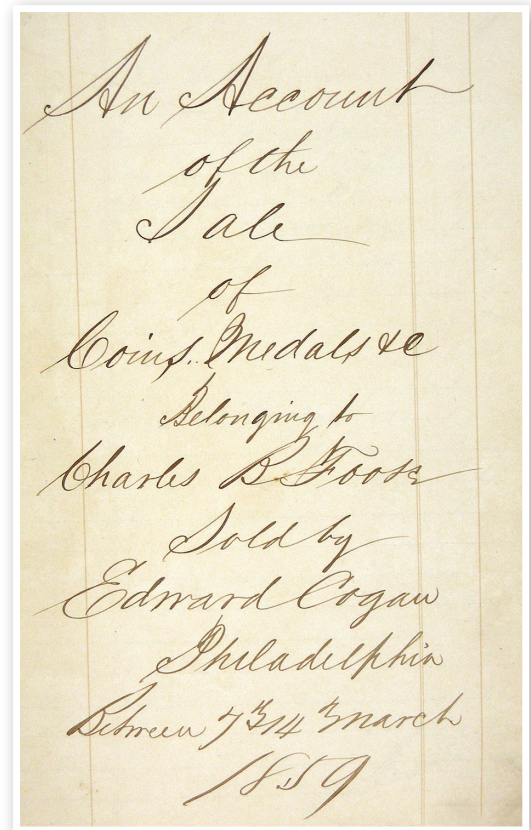 An Account
of the
Sale
of
Coins, Medals &c
Belonging to
Charles B Foose
Sold by
Edward Cogan
Philadelphia
Between 7 & 14 March
1859